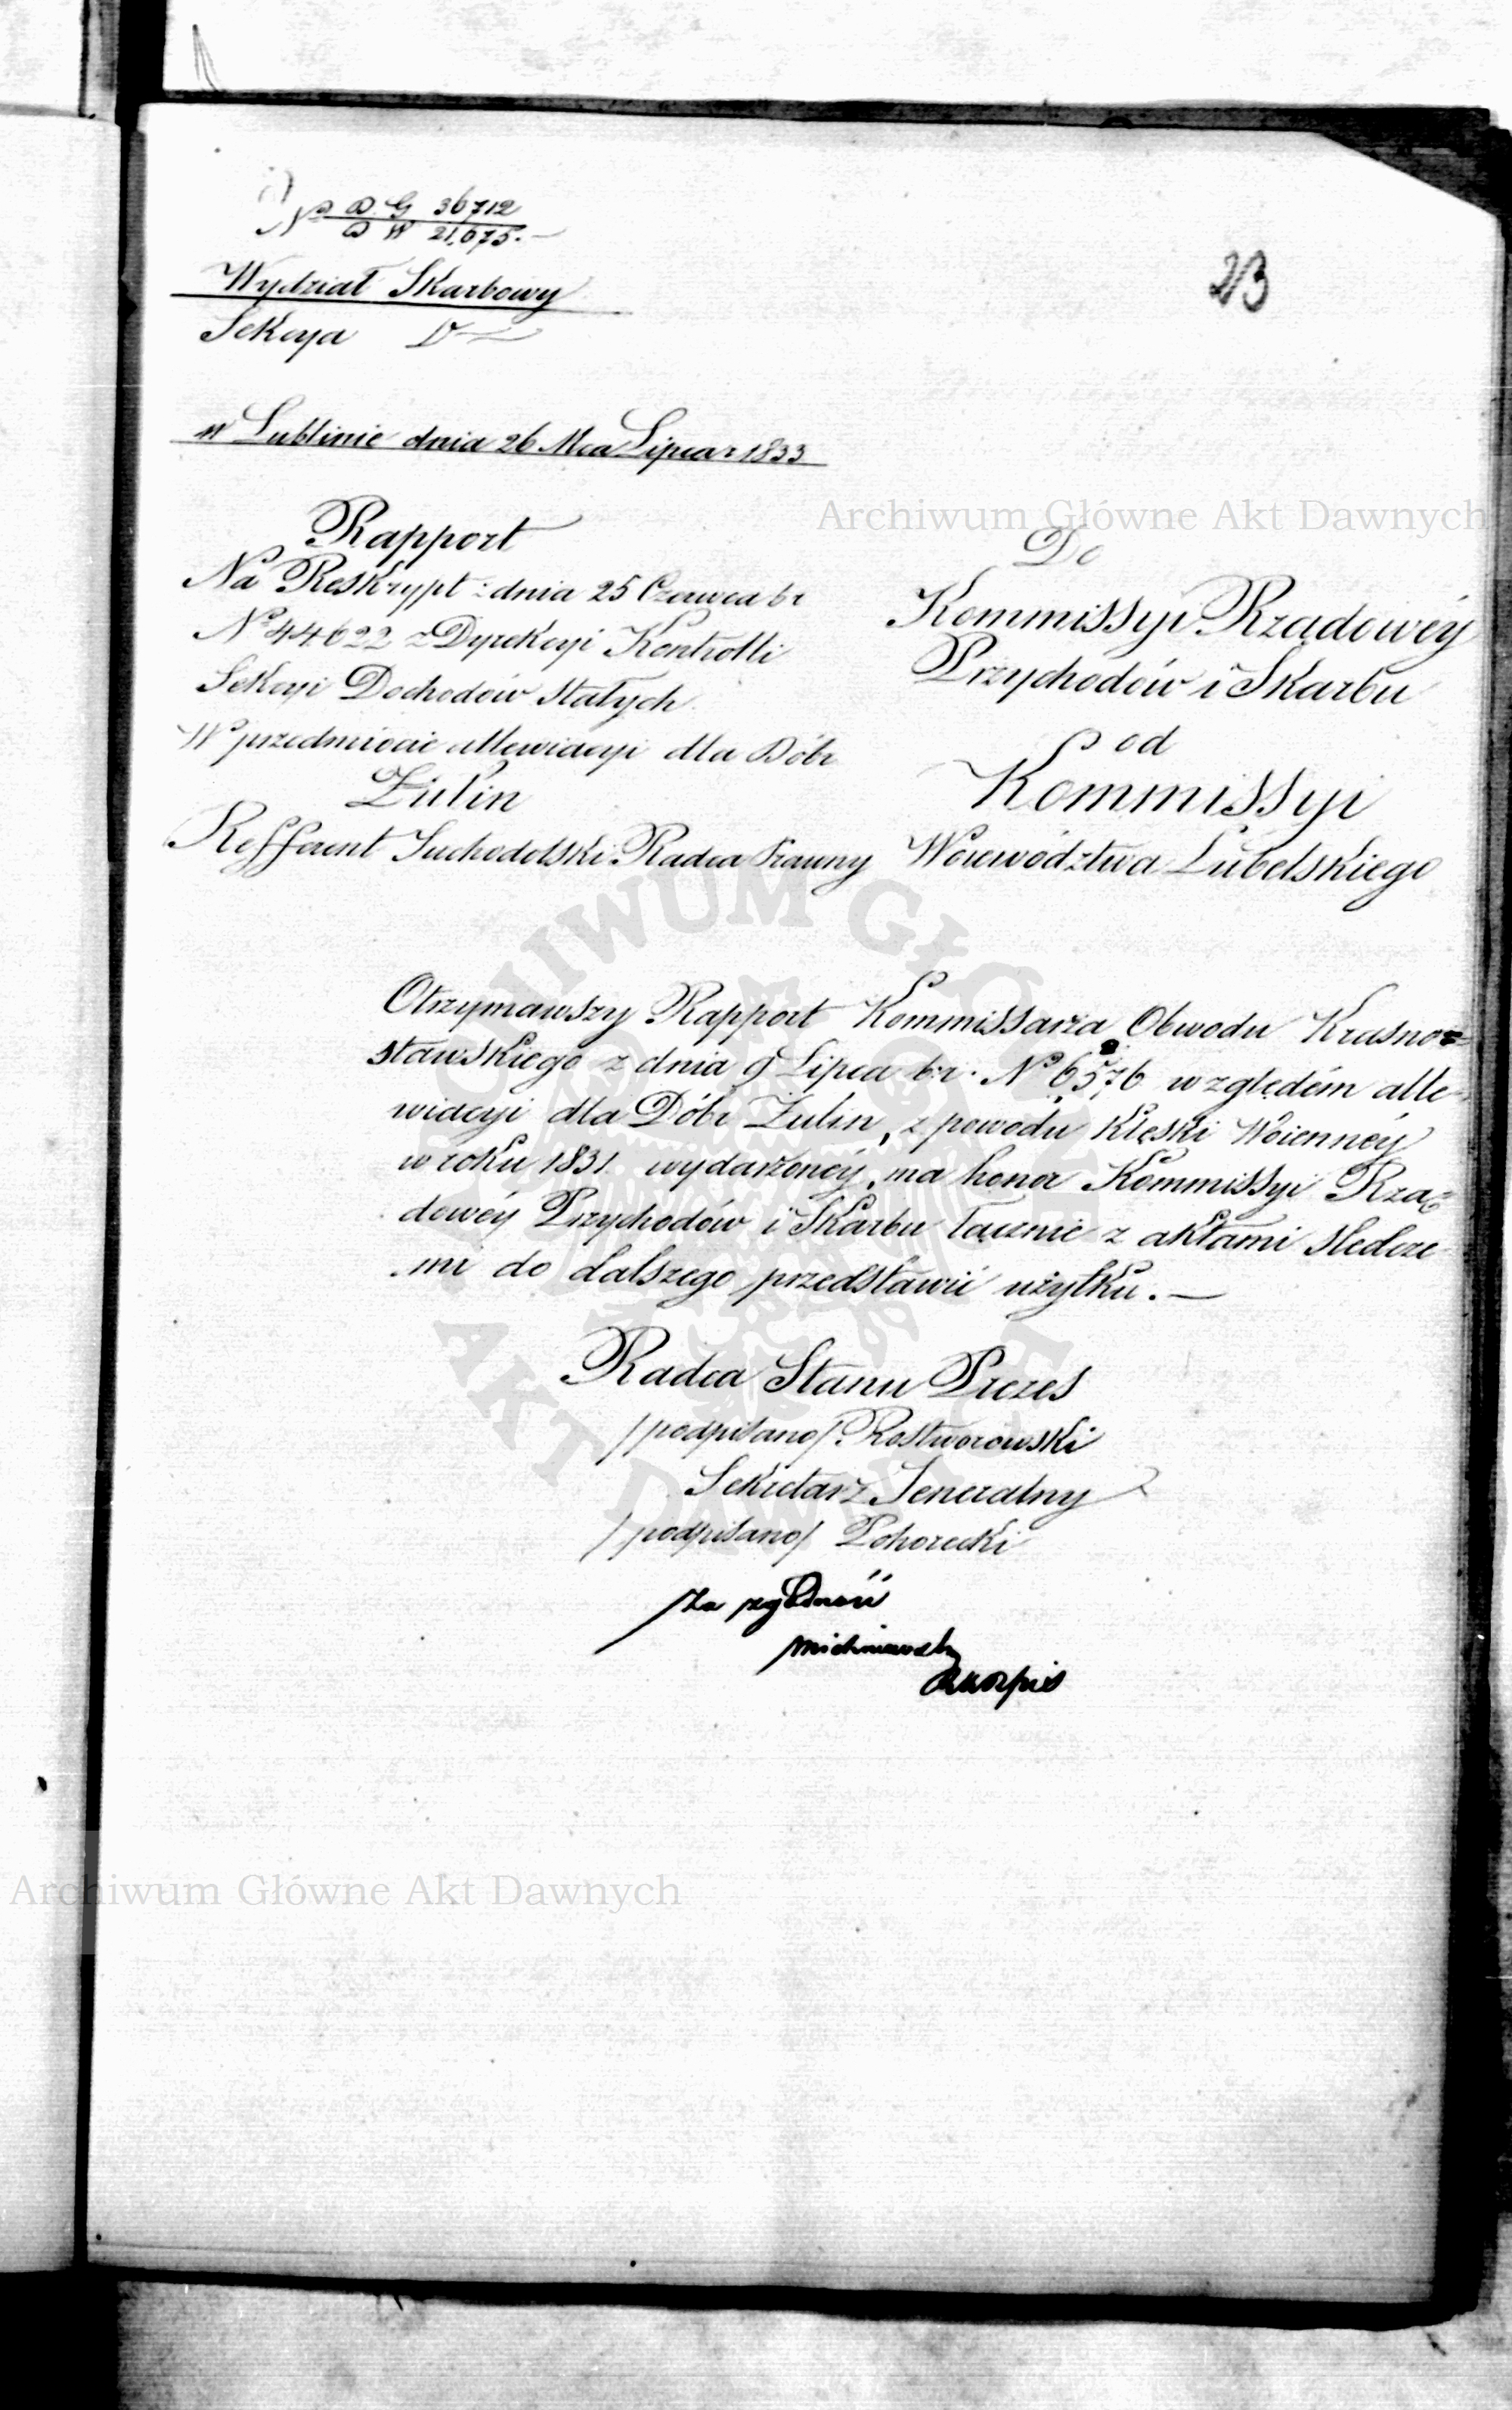 N<sup>o</sup> D. G 36712
D W 21,675.—
23
Wydział Skarbowy
Sekcya
w Lublinie dnia 26 Mca Lipca r 1833
Rapport
Na Reskrypt z dnia 25 Czerwca br
N<sup>o</sup> 44622 z Dyrekcyi Kontrolli
Sekcyi Dochodów Stałych
W przedmiocie allewiacyi dla Dóbr
Żulin
Refferent Suchodolski Radca Prawny
Archiwum Główne Akt Dawnych
Do
Kommissyi Rządowéy
Przychodów i Skarbu
od
Kommissyi
Woiewództwa Lubelskiego
Otrzymawszy Rapport Kommissarza Obwodu Krasno=
stawskiego z dnia 9 Lipca b.r. N<sup>o</sup> 6576 względém alle-
wiacyi dla Dóbr Żulin, z powodu Klęski Woiennéy
w roku 1831 wydarzonéy, ma honor Kommissyi Rzą=
dowéy Przychodów i Skarbu łącznie z aktami śledcze-
mi do dalszego przedstawić użytku.—
Radca Stanu Prezes
/podpisano/ Rostworowski
Sekretarz Jeneralny
/podpisano/ Pohorecki
Za zgodność
ARCHIWUM GŁÓWNE
AKT DAWNYCH
Archiwum Główne Akt Dawnych